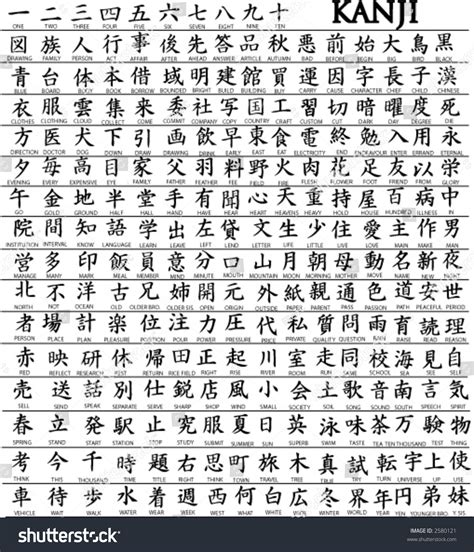 一 二 三 四 五 六 七 八 九 十 KANJI
ONE TWO THREE FOUR FIVE SIX SEVEN EIGHT NINE TEN
図 族 人 行 事 後 先 答 品 秋 悪 前 始 大 鳥 黒
DRAWING FAMILY PERSON ACT AFFAIR AFTER AHEAD ANSWER ARTICLE AUTUMN BAD BEFORE BEGIN BIG BIRD BLACK
青 台 体 本 借 域 明 建 館 買 運 因 字 長 子 漢
BLUE BOARD BODY BOOK BORROW BRIGHT BUILD BUILDING BUY CARRY CAUSE CHARACTER CHIEF CHILD CHINESE
衣 服 雲 集 来 委 社 写 国 工 習 切 暗 曜 度 死
CLOTHES CLOTHING CLOUD COLLECT COME COMPANY COPY COUNTRY CRAFT CUT DARK DAY DEGREE DIE
方 医 犬 下 引 画 飲 早 東 食 電 終 勉 入 用 永
DIRECTION DOCTOR DOG DOWN DRAW DRAWING DRINK EARLY EAST EAT ELECTRICITY END ENDEAVOUR ENTER ERRAND ETERNAL
夕 毎 高 目 家 父 羽 料 野 火 肉 花 足 友 以 学
EVENING EVERY EXPENSIVE EYE FAMILY FATHER FEATHER FEE FIELD FIRE FLESH FLOWER FOOT FRIEND FROM
午 金 地 半 堂 手 有 開 心 天 重 持 屋 百 病 中
GO GOLD GROUND HALF HALL HAND HAVE HEART HEAVENS HEAVY HOLD HOUSE HUNDRED ILLNESS IN
院 間 知 語 学 出 左 貸 文 生 少 住 愛 主 作 男
INSTITUTION INTERVAL KNOW LANGUAGE LEARN LEAVE LEFT LEND LETTER LIFE LITTLE LIVE LOVE MAIN MAKE MAN
営 多 印 飯 員 意 分 口 山 月 朝 母 動 名 新 夜
MANAGE MANY MARK MEAL MEMBER MIND MINUTE MOUTH MOUNTAIN MOON MORNING MOTHER MOVE NAME NEW NIGHT
北 不 洋 古 兄 姉 開 元 外 紙 公 親 通 色 道 安 世
NORTH NOT OCEAN OLD OLDER BRO. OLDER SIS. OPEN ORIGIN OUTSIDE PAPER PARENT PASS PATH PEACE
者 場 計 楽 位 注 力 圧 代 私 質 問 雨 育 読 理
PERSON PLACE PLAN PLEASANT POSITION POUR POWER PRESSURE PRIVATE QUALITY QUESTION RAIN RAISE READ REASON
赤 映 研 休 帰 田 正 起 川 室 走 同 校 海 見 自
RED REFLECT RESEARCH REST RETURN RICE FIELD RIGHT RISE RIVER ROOM RUN SAME SCHOOL SEA SEE SELF
売 送 話 仕 鋭 店 風 小 会 土 歌 音 南 言 気
SELL SEND SPEAK SERVE SHARP SHOP SMALL SOCIETY SOIL SONG SOUND SOUTH SPEECH SPIRIT
春 立 発 駅 止 究 服 夏 日 英 泳 味 茶 万 験 物
SPRING STAND START STATION STOP STUDY SUMMER SUN SWIM TASTE TEA TEN THOUSAND TEST THING
考 今 千 時 題 右 思 町 旅 木 真 試 転 宇 上 使
THINK THIS THOUSAND TIME TITLE RIGHT THINK TOWN TRAVEL TREE TRUE TRY TURN UP USE
車 待 歩 水 弱 着 週 西 何 白 広 冬 世界 年 円 弟 妹
VEHICLE WAIT WALK WATER WEAK WEAR WEEK WEST WHAT WHITE WIDE WINTER WORLD YEAR YEN YOUNGER BR.
shutterstock
www.shutterstock.com · 2580121